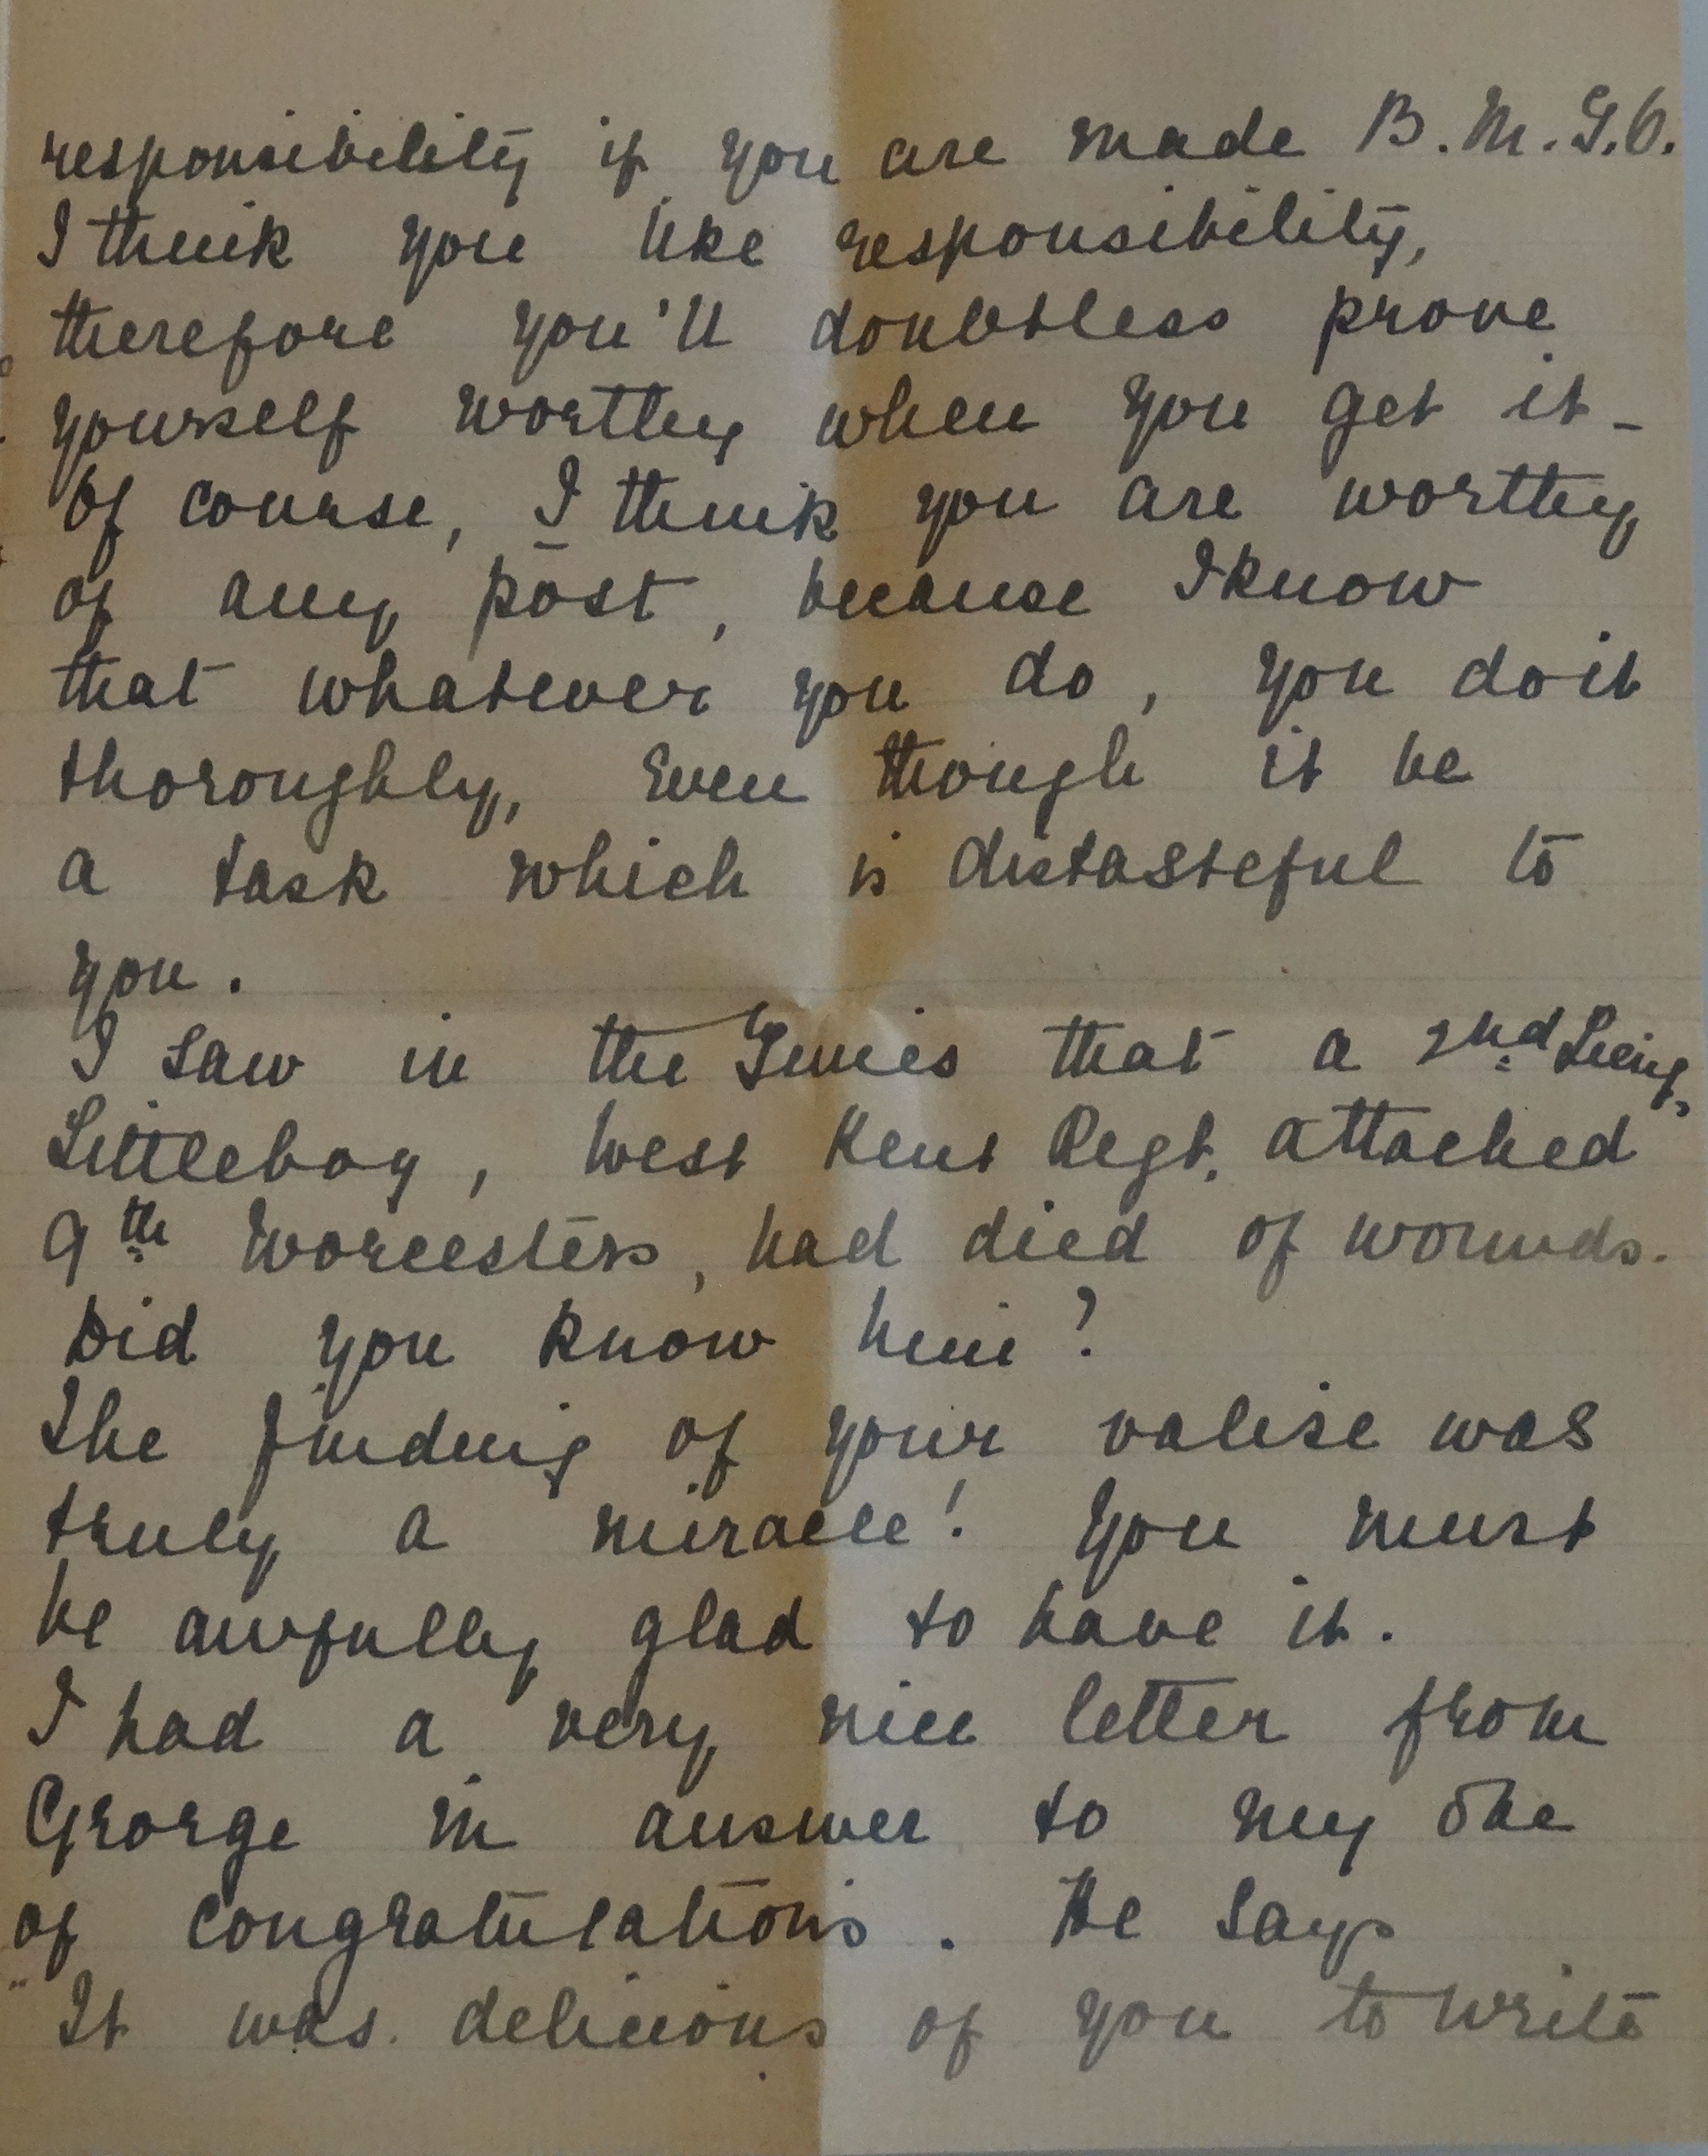 responsibility if you are made B.M.G.O.
I think you like responsibility,
therefore you'll doubtless prove
yourself worthy when you get it -
Of course, I think you are worthy
of any post, because I know
that whatever you do, you do it
thoroughly, even though it be
a task which is distasteful to
you.
I saw in the Times that a 2nd Lieut,
Littleboy, West Kent Regt. attached
9th Worcesters, had died of wounds.
Did you know him?
The finding of your valise was
truly a miracle! You must
be awfully glad to have it.
I had a very nice letter from
George in answer to my one
of congratulations. He says
"It was delicious of you to write